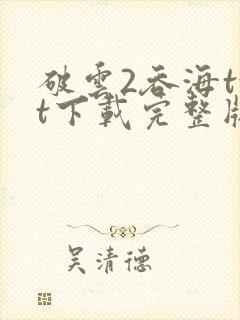 破雲2吞海t
t下載完整版
吴清德